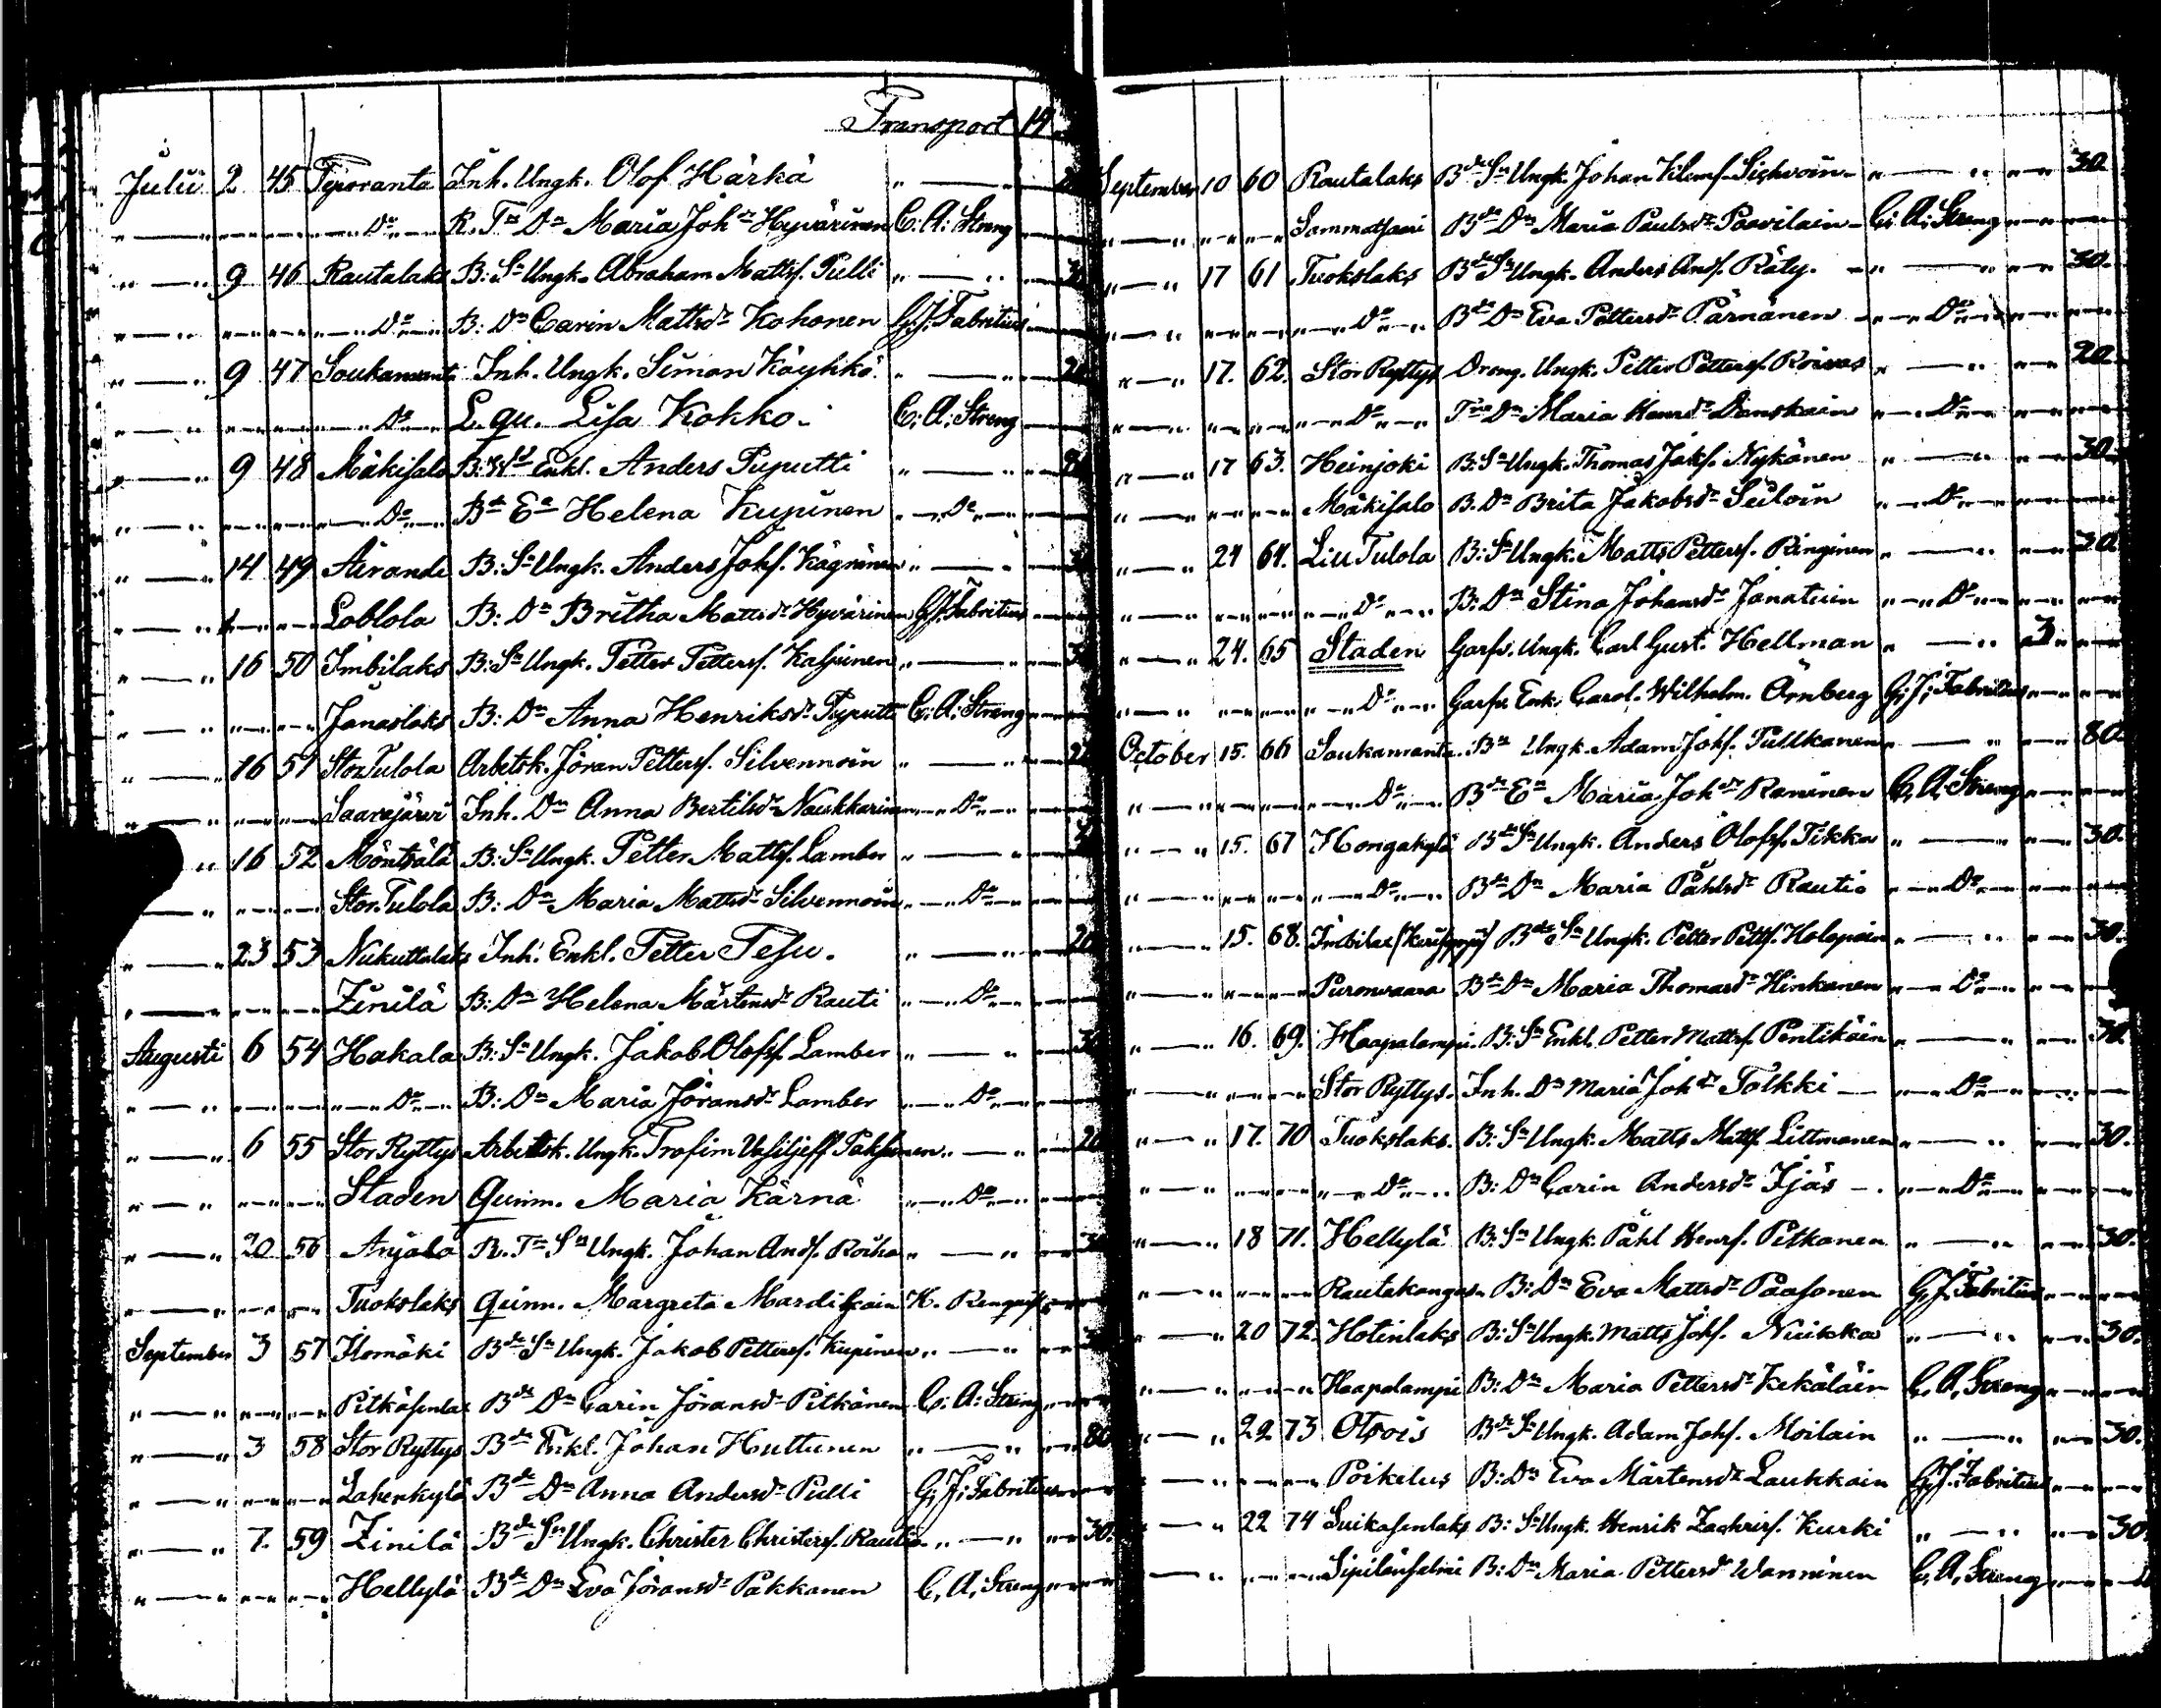 Transport 14
Julii 2 45 Inh. Ungk. Olof Härkä
Do R. Ts Dr Maria Johdr Hyvärinen C: A: Streng
9 46 Rautalaks B: Sn Ungk. Abraham Mattsf. Pulli 30
Do B: Dn Carin Mattsdr Kohonen G: J: Fabritius
9 47 Soukanranta Inh. Ungk. Simon Käyhkö 20
Do L. qu. Lisa Kokko C: A: Streng
9 48 Mäkisalo B: Enkl. Anders Puputti
Do Bde Ea Helena Kupinen Do
14 49 Airande B: Sn Ungk. Anders Johsf.
B: Dn Britha Mattsdr Hyvärinen G: J: Fabritius
16 50 Imbilaks B: Sn Ungk. Petter Pettersf. 30
Janaslaks B: Dn Anna Henriksdr Puputti C: A: Streng
16 51 Stor Tulola Arbetsk. Jöran Pettersf. Silvennoin
Saarejärvi Inh. Dn Anna Bertilsdr Do
16 52 Möntsälä B: Sn Ungk. Petter Mattsf. Lamber
Stor Tulola B: Dn Maria Mattsdr Silvennoin Do
23 53 Nukuttalaks Inh. Enkl. Petter 20
Zinilä B: Dn Helena Mårtensdr Rauti Do
Augusti 6 54 Hakala B: Sn Ungk. Jakob Olofsf. Lamber 30
Do B: Dn Maria Jöransdr Lamber Do
6 55 Stor Ryttys Arbetsk. Ungk. Trofim Vasiljeff 20
Staden Quinn. Maria Kärnä Do
20 56 Anjala R. Ts Sn Ungk. Johan Andsf. Roiha 30
Tuokslaks Quinn. Margreta
September 3 57 Ilomäki Bde Sn Ungk. Jakob Pettersf. Kupinen
Bde Dn Carin Jöransdr Pitkänen C: A: Streng
3 58 Stor Ryttys Bde Enkl. Johan Huttunen 80
Lahenkylä Bde Dn Anna Andersdr Pulli G: J: Fabritius
7. 59 Zinilä Bde Sn Ungk. Christer Christersf. Rautio 30.
Hellylä Bde Dn Eva Jöransdr Pakkanen C. A. Streng
September 10 60 Rautalaks Bde Sn Ungk. Johan Klemsf. Sichvoin 30
Bde Dn Maria Paulsdr Paavilain C: A: Streng
17 61 Tuokslaks Bde Sn Ungk. Anders Andsf. Räty. 30.
Do Bde Dn Eva Pettersdr Pärnänen Do
17. 62. Stor Ryttys Dreng. Ungk. Petter Pettersf. Roivas 20.
Do Maria Henrsdr Danskain Do
17 63. Heinjoki B: Sn Ungk. Thomas Jaksf. Nykänen 30
Mäkisalo B. Dn Brita Jakobsdr Seiloin Do
24 64. Lill Tulola B: Sn Ungk. Matts Pettersf. Ringinen 30
Do B: Dn Stina Johansdr Janatuin Do
24. 65 Staden Garfv. Ungk. Carl Gust. Hellman 3
Do Garfv. Enk. Carol. Wilhelm. Örnberg G: J: Fabritius
October 15. 66 Soukanranta Bn Ungk. Adam Johsf. Pullkanen 80.
Do Bde Ea Maria Johdr Raninen C. A. Streng
15. 67 Hongakylä Bde Sn Ungk. Anders Olofsf. Tikka 30.
Do Bde Dn Maria Påhlsdr Rautio Do
15. 68. Imbilax Bde Sn Ungk. Petter Pettsf. Holopain 30.
Puronvaara Bde Dn Maria Thomasdr Hinkanen Do
16. 69. Haapalampi. B: Sn Enkl. Petter Mattsf. Pentikäin 30.
Stor Ryttys. Inh. Dn Maria Johdr Tolkki Do
17. 70 Tuokslaks. B: Sn Ungk. Matts Mattsf. Littmanen 30.
Do B: Dn Carin Andersdr Ijäs Do
18 71. Hellylä B: Sn Ungk. Påhl Henrsf. Pitkanen 30.
Rautakangas B: Dn Eva Mattsdr Paasonen G. J. Fabritius
20 72. Hotinlaks B: Sn Ungk. Matts Johsf. Nuikka 30.
Haapalampi B: Dn Maria Pettersdr Kekäläin C. A. Streng
22 73 Otsois Bde Sn Ungk. Adam Johsf. Moilain 30.
Poikelus B: Dn Eva Mårtensdr Laukkain G. J. Fabritius
22 74 Suikasenlaks B: Sn Ungk. Henrik Zachrisf. Kurki 30
B: Dn Maria Pettersdr Wanninen C. A. Streng